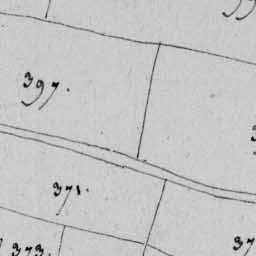 397.
371.
373.
37